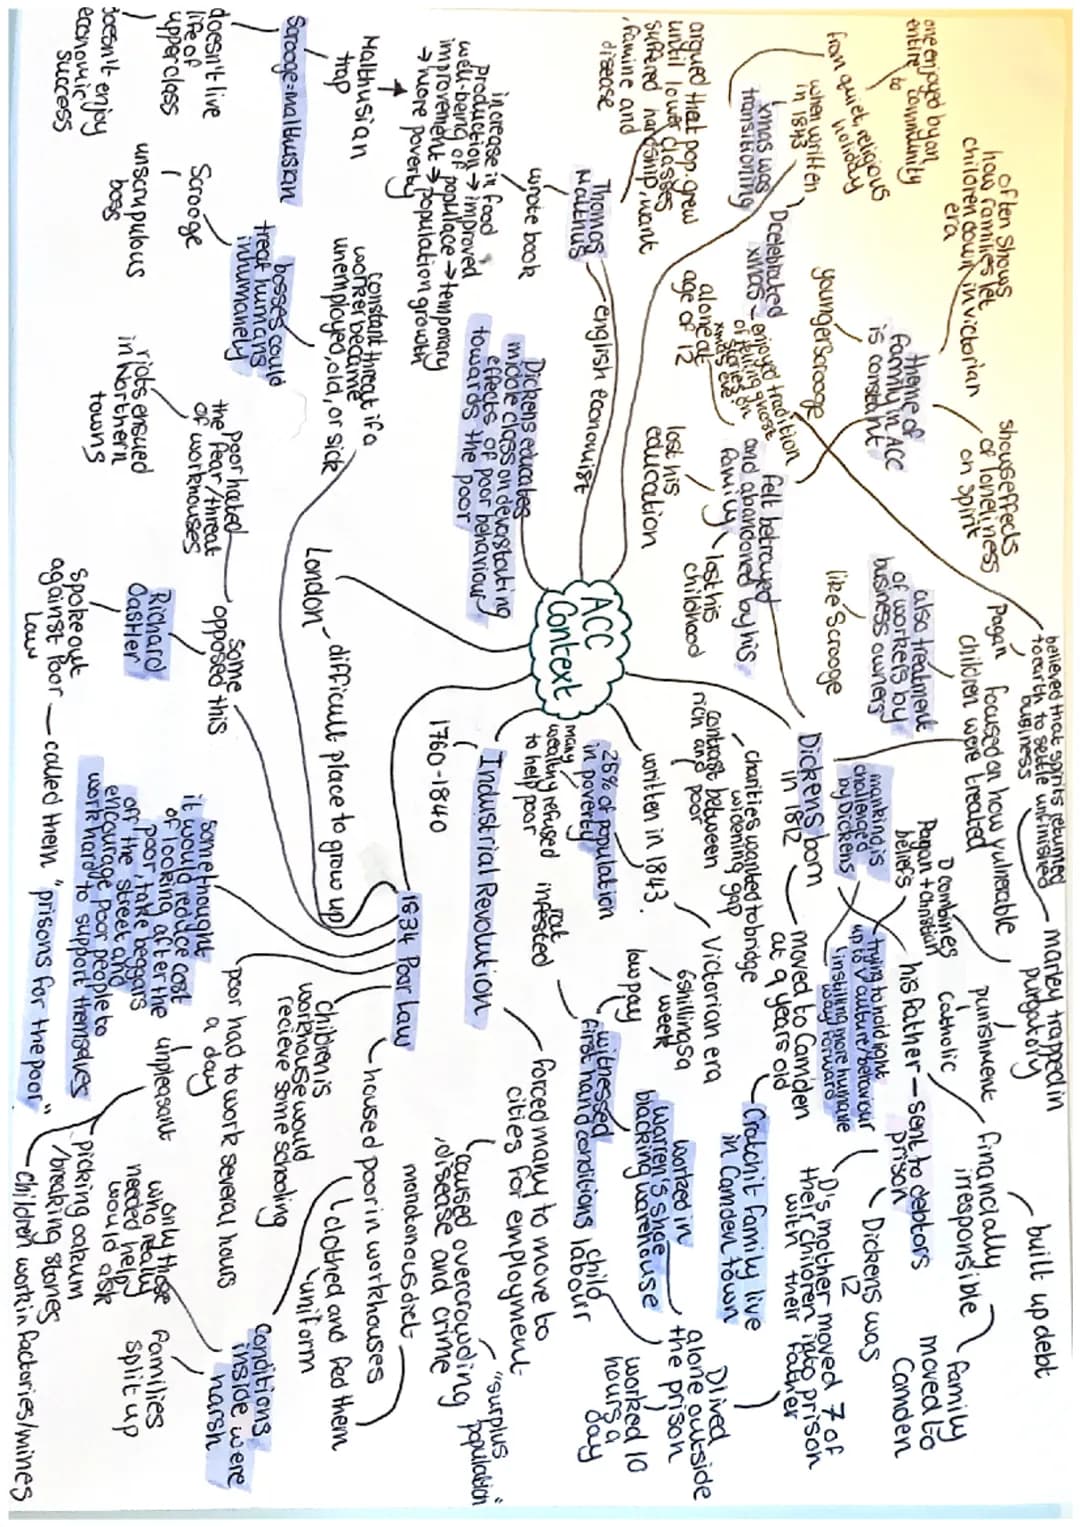 ACC
Context
Dickens born
in 1812
moved to Camden
at 9 years old
Cratchit family live
in Camden town
his father - sent to debtors
prison
financially
irresponsible
built up debt
family
moved to
Camden
punishment
Dickens was
12
D's mother moved 7 of
their children into prison
with their father
D lived
alone outside
the prison
worked in
Warren's shoe
blacking warehouse
worked 10
hours a
day
child
labour
witnessed
first hand conditions
rat
infested
6 shillings a
week
low pay
felt betrayed
and abandoned by his
family
lost his
education
lost his
childhood
alone at
age of 12
younger scrooge
theme of
family in ACC
is constant
often shows
how families let
children down in victorian
era
shows effects
of loneliness
on spirit
focused on how vulnerable
children were treated
also treatment
of workers by
business owners
like scrooge
mankind is
challenged
by Dickens
trying to hold light
up to v culture/behaviour
instilling more humane
way forward
D combines
Pagan + christian
beliefs
Catholic
Pagan
believed that spirits returned
to earth to settle unfinished
business
marley trapped in
purgatory
D celebrated
xmas - enjoyed tradition
of telling ghost
stories on
xmas eve
xmas was
transitioning
when written
in 1843
from quiet, religious
holiday
to
one enjoyed by an
entire community
written in 1843.
Victorian era
charities wanted to bridge
widening gap
contrast between
rich and poor
25% of population
in poverty
many
wealthy refused
to help poor
Thomas
Malthus
english economist
argued that pop. grew
until lower classes
suffered hardship, want
, famine and
disease
wrote book
increase in food
production → improved
well-being of populace → temporary
improvement → population growth
→ more poverty
Malthusian
trap
Scrooge = malthusian
doesn't live
life of
upper class
doesn't enjoy
economic
success
Dickens educates
middle class on devastating
effects of poor behaviour
towards the
poor
London - difficult place to grow up
Industrial Revolution
1760-1840
forced many to move to
cities for employment
caused overcrowding
, disease and crime
"surplus
population"
1834 Poor Law
housed poor in workhouses
clothed and fed them
uniform
monotonous diet
children is
workhouse would
recieve some schooling
conditions
inside were
harsh
families
split up
only those
who really
needed help
would ask
poor had to work several hours
a day
unpleasant
picking oakum
/breaking stones
children work in factories/mines
some thought
it would reduce cost
of looking after the
poor, take beggars
off the street and
encourage poor people to
work hard to support themselves
some
opposed this
Richard
Oastler
spoke out
against Poor
Law
called them "prisons for the poor"
poor hated
the fear/threat
of workhouses
riots ensued
in Northern
towns
constant threat if a
worker became
unemployed, old, or sick
bosses could
treat humans
inhumanely
Scrooge
unscrupulous
boss